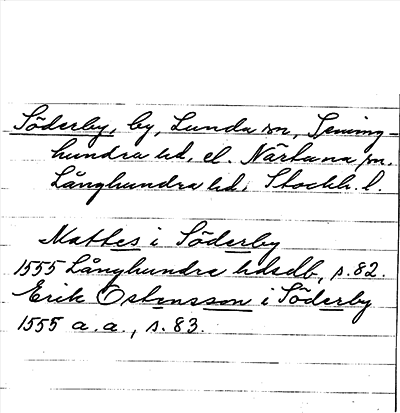 Söderby, by, Lunda sn, Seming-
hundra hd, el. Närtuna sn.
Långhundra hd, Stockh. l.
Mattes i Söderby
1555 Långhundre hdsdb, s. 82.
Erik Östensson i Söderby
1555 a.a., s. 83.